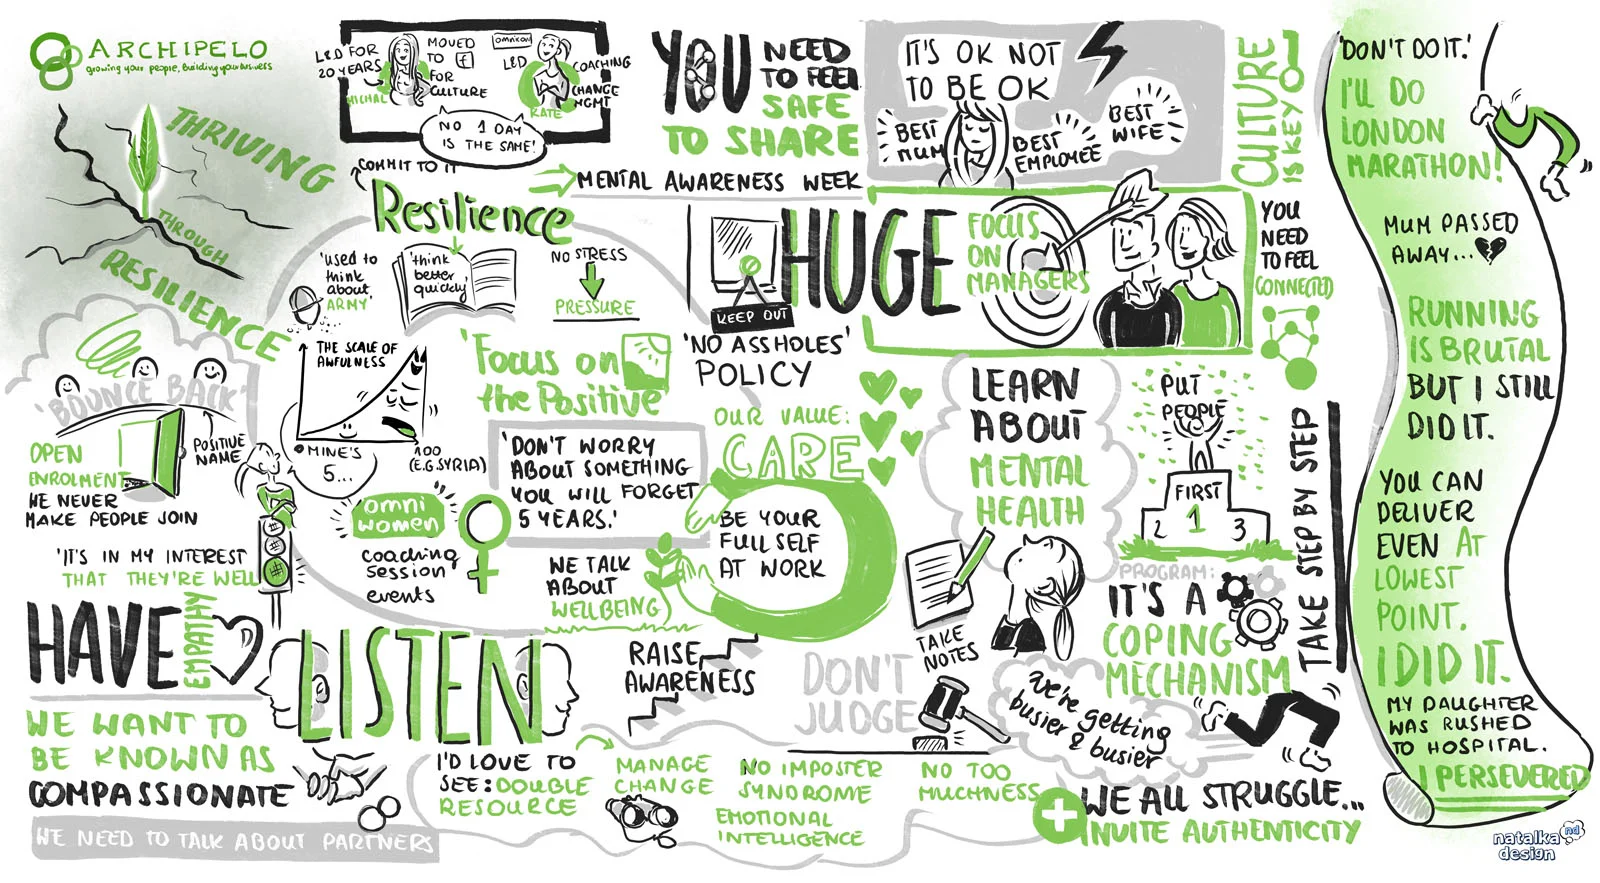 ARCHIPELO
growing your people, building your business
THRIVING
THROUGH
RESILIENCE
L&D FOR
20 YEARS
MICHAL
MOVED
TO f
FOR
CULTURE
omnicom
L&D
COACHING
CHANGE
MGMT
KATE
NO 1 DAY
IS THE SAME!
YOU
NEED
TO FEEL
SAFE
TO SHARE
IT'S OK NOT
TO BE OK
BEST
MUM
BEST
EMPLOYEE
BEST
WIFE
CULTURE
IS KEY
COMMIT TO IT
MENTAL AWARENESS WEEK
Resilience
'used to
think
about
ARMY'
'think
better
quickly'
NO STRESS
PRESSURE
KEEP OUT
'NO ASSHOLES'
POLICY
HUGE
FOCUS
ON
MANAGERS
YOU
NEED
TO FEEL
CONNECTED
'BOUNCE BACK'
POSITIVE
NAME
OPEN
ENROLMENT
WE NEVER
MAKE PEOPLE JOIN
THE SCALE OF
AWFULNESS
MINE'S
5...
100
(E.G. SYRIA)
'Focus on
the Positive'
'DON'T WORRY
ABOUT SOMETHING
YOU WILL FORGET
5 YEARS.'
OUR VALUE:
CARE
BE YOUR
FULL SELF
AT WORK
LEARN
ABOUT
MENTAL
HEALTH
PUT
PEOPLE
FIRST
1
2
3
TAKE STEP BY STEP
omni
women
coaching
session
events
WE TALK
ABOUT
WELLBEING
'IT'S IN MY INTEREST
THAT THEY'RE WELL'
HAVE
EMPATHY
LISTEN
RAISE
AWARENESS
TAKE
NOTES
PROGRAM:
IT'S A
COPING
MECHANISM
DON'T
JUDGE
We're getting
busier & busier
WE WANT TO
BE KNOWN AS
COMPASSIONATE
WE NEED TO TALK ABOUT PARTNERS
I'D LOVE TO
SEE: DOUBLE
RESOURCE
MANAGE
CHANGE
NO IMPOSTER
SYNDROME
EMOTIONAL
INTELLIGENCE
NO TOO
MUCHNESS
WE ALL STRUGGLE...
INVITE AUTHENTICITY
'DON'T DO IT.'
I'LL DO
LONDON
MARATHON!
MUM PASSED
AWAY...
RUNNING
IS BRUTAL
BUT I STILL
DID IT.
YOU CAN
DELIVER
EVEN AT
LOWEST
POINT.
I DID IT.
MY DAUGHTER
WAS RUSHED
TO HOSPITAL.
I PERSEVERED
natalka
design
nd